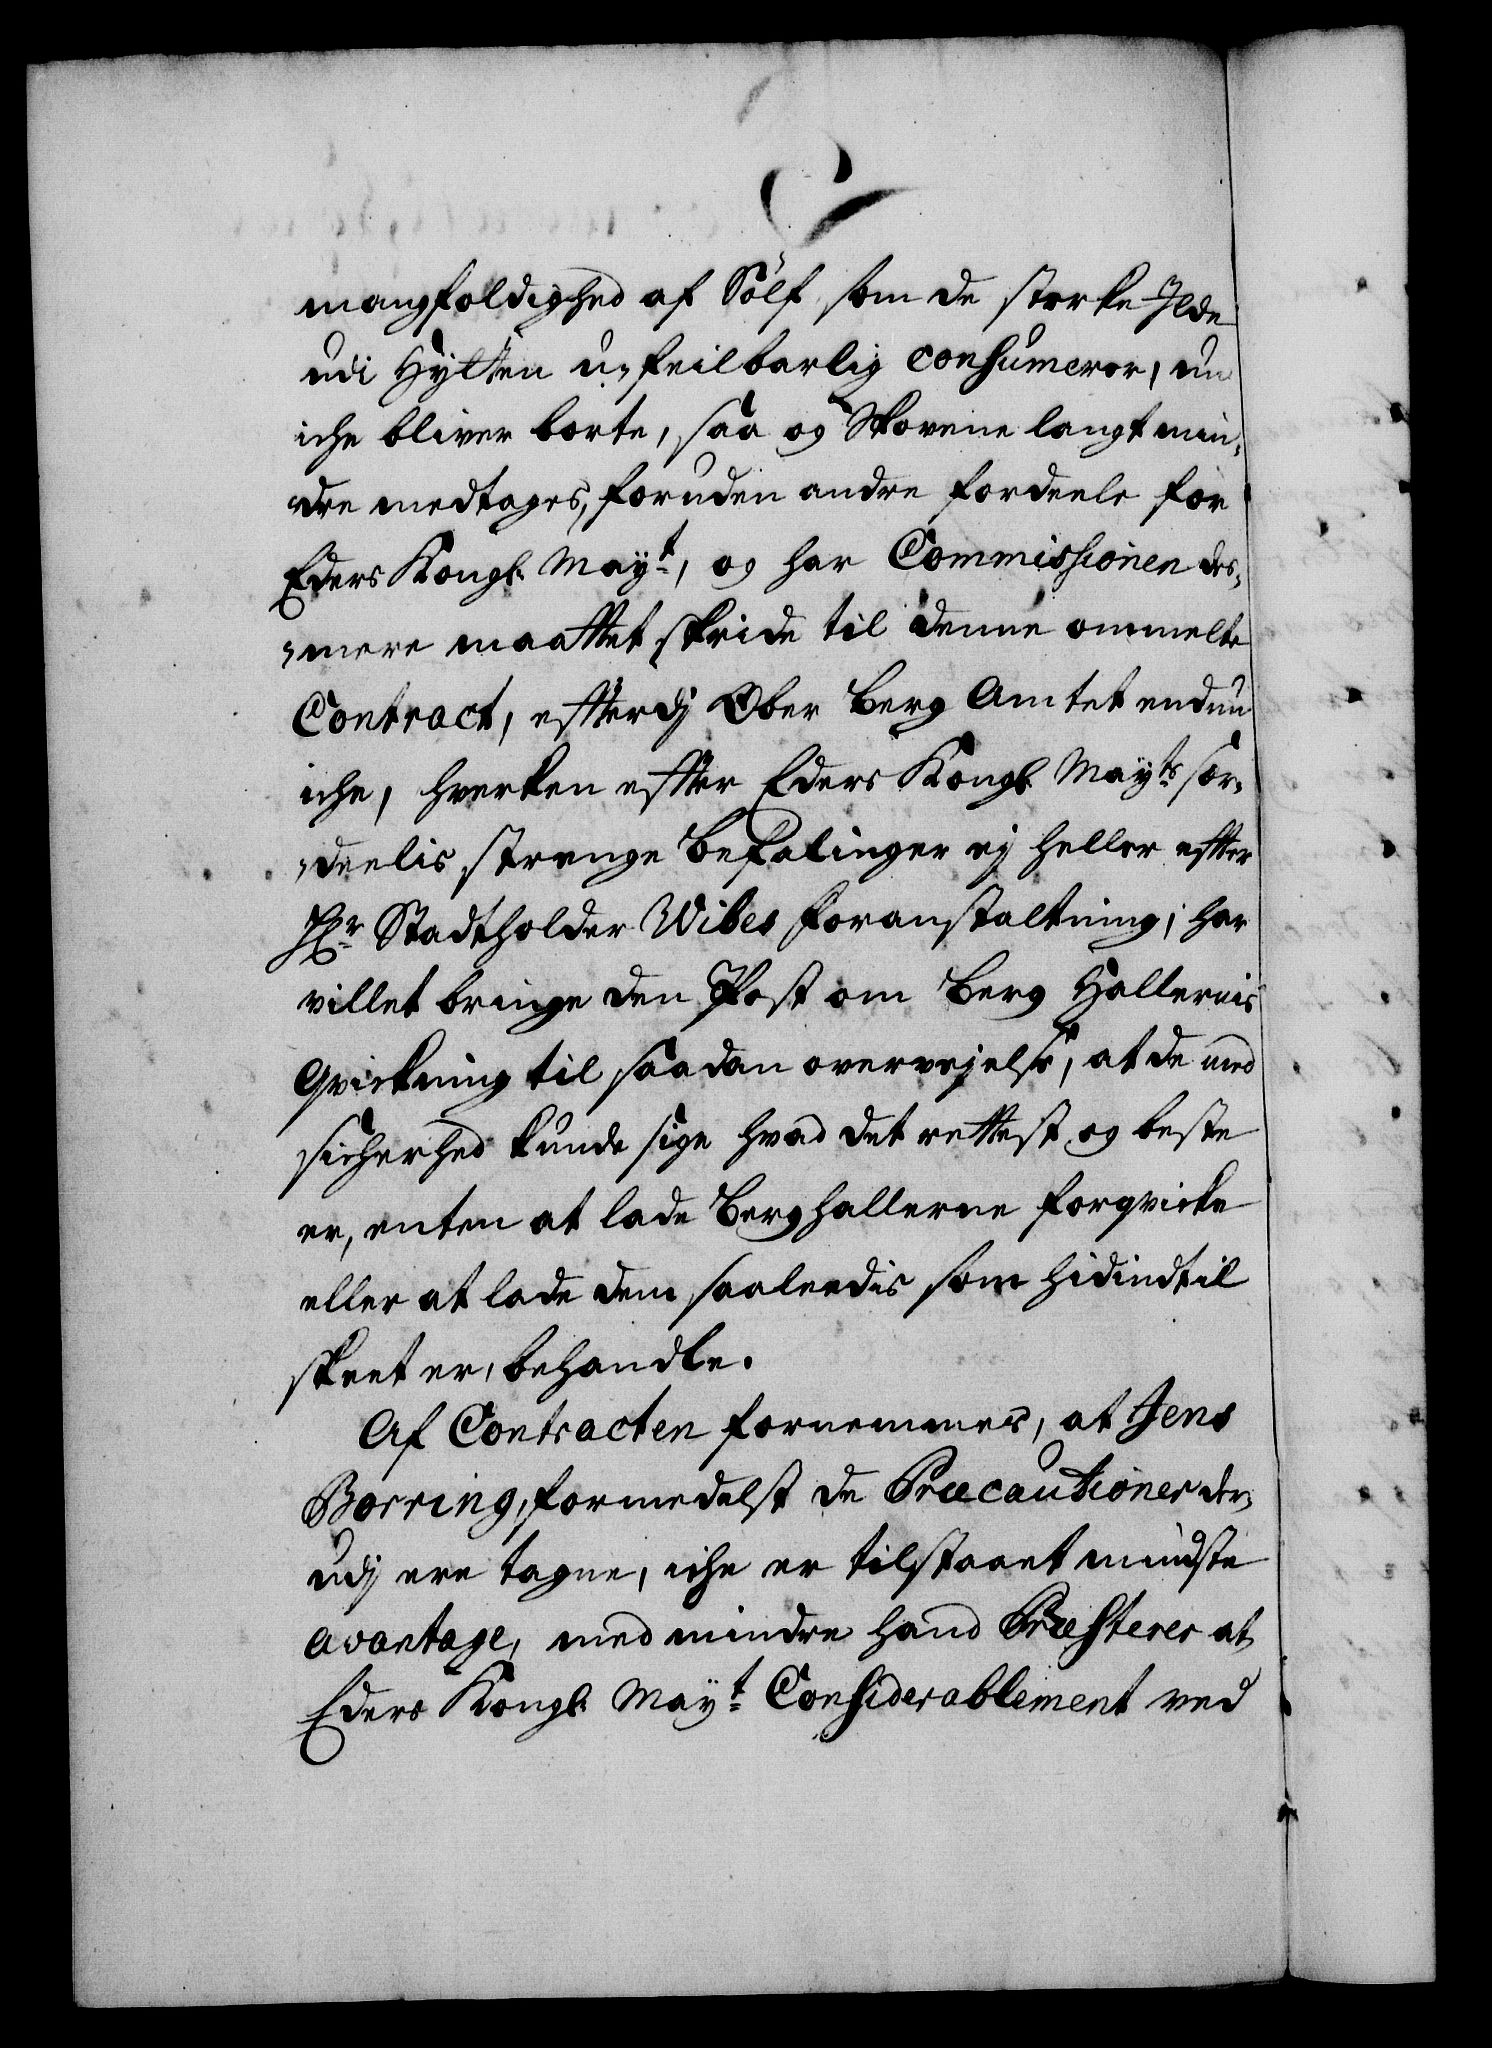 mangfoldighed af Sølf som de sterke Ilde
udi Hytten u-feilbarlig consumerer,
iche bliver borte, saa og Skovene langt min-
dre medtages, foruden andre fordeele for
Eders Kongl. Mayt, og har Commissionen des-
-mere maattet skride til denne ommelte
Contract, efterdj Ober Berg Amtet endnu
iche, hverken efter Eders Kongl. Mayts sær-
-deelis strenge Befalinger ej heller efter
Hr Stadtholder Wibes foranstaltning, har
villet bringe den Post om Berg Hallernis
Qvickning til saadan overvejelse, at de med
sicherhed kunde sige hvad det rettest og beste
er, enten at lade Berghallerne forqvicke
eller at lade dem saaleedis som hidindtil
skeet er, behandle.
Af Contracten fornemmes, at Jens
Borring, formedelst de Præcautioner der-
udj ere tagne, iche er tilstaaet mindste
avantage, med mindre hand Præsterer at
Eders Kongl. Mayt Considerablement ved